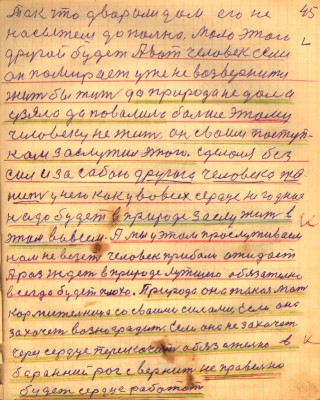 Так что два ром дом его не 45
насытем до полно, мало этого
другой будет А вот человек если
он помирает уже не возвернити
жит бы жит да природа не дала
взяла да повалила больше этому
человеку не жит он своим поступ-
ком заслужил этого. сделался без
сил и за собою другого человека тя
нит у него как у во всех сердце негодная
надо будет в природе заслужит в
этом во всем. А мы у этом прослуживаем
нам не везет человек прибали ожидает
А раз ждет в природе лутшего обязательно
всегда будет плохо. Природа она такая мать
кормителница со своими силами, если она
захочет вознаградит. Если она не захочет
через сердце перескочит обязателно в
баранний рог свернит не правелно
будет сердце работат